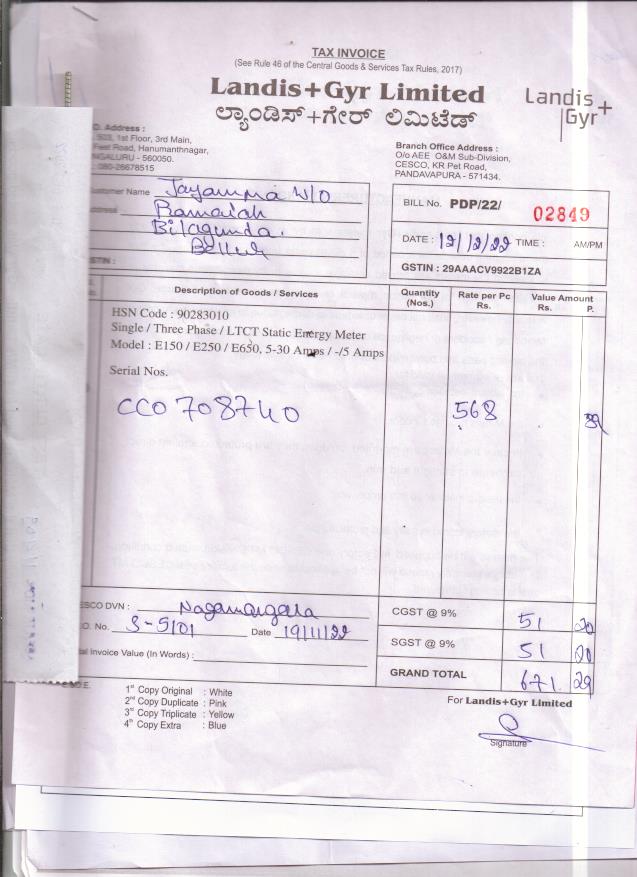 TAX INVOICE
(See Rule 46 of the Central Goods & Services Tax Rules, 2017)
Landis+Gyr Limited
ಲ್ಯಾಂಡಿಸ್+ಗೇರ್ ಲಿಮಿಟೆಡ್
Landis+
Gyr
Address :
1st Floor, 3rd Main,
Feet Road, Hanumanthnagar,
NGALURU - 560050.
080-26678515
Branch Office Address :
O/o AEE O&M Sub-Division,
CESCO, KR Pet Road,
PANDAVAPURA - 571434.
ustomer Name Jayamma W/O
Ramaiah
Bilagunda.
Bellur
STIN :
BILL No. PDP/22/ 02849
DATE : 12/12/22 TIME : AM/PM
GSTIN : 29AAACV9922B1ZA
Description of Goods / Services Quantity (Nos.) Rate per Pc Rs. Value Amount Rs. P.
HSN Code : 90283010
Single / Three Phase / LTCT Static Energy Meter
Model : E150 / E250 / E650, 5-30 Amps / -/5 Amps
Serial Nos.
CC0708740 568
ESCO DVN : Nagamangala
.O. No. S-5101 Date 19/11/22
al Invoice Value (In Words) :
CGST @ 9% 51 20
SGST @ 9% 51 20
GRAND TOTAL 671 29
& O.E.
1st Copy Original : White
2nd Copy Duplicate : Pink
3rd Copy Triplicate : Yellow
4th Copy Extra : Blue
For Landis+Gyr Limited
Signature